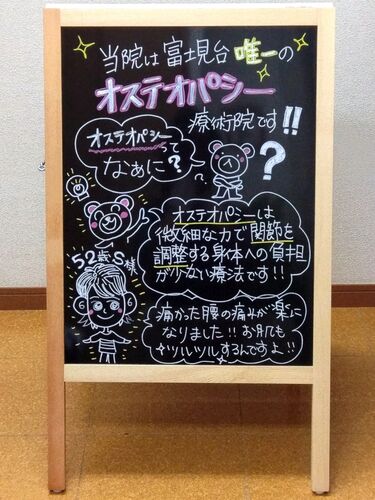 当院は富士見台唯一の
オステオパシー
療術院です!!
オステオパシー
って
なぁに?
?
オステオパシーは
微細な力で関節を
調整する身体への負担
が少ない療法です!!
52歳S様
痛かった腰の痛みが楽に
なりました!!お肌も
ツルツルするんですよ!!